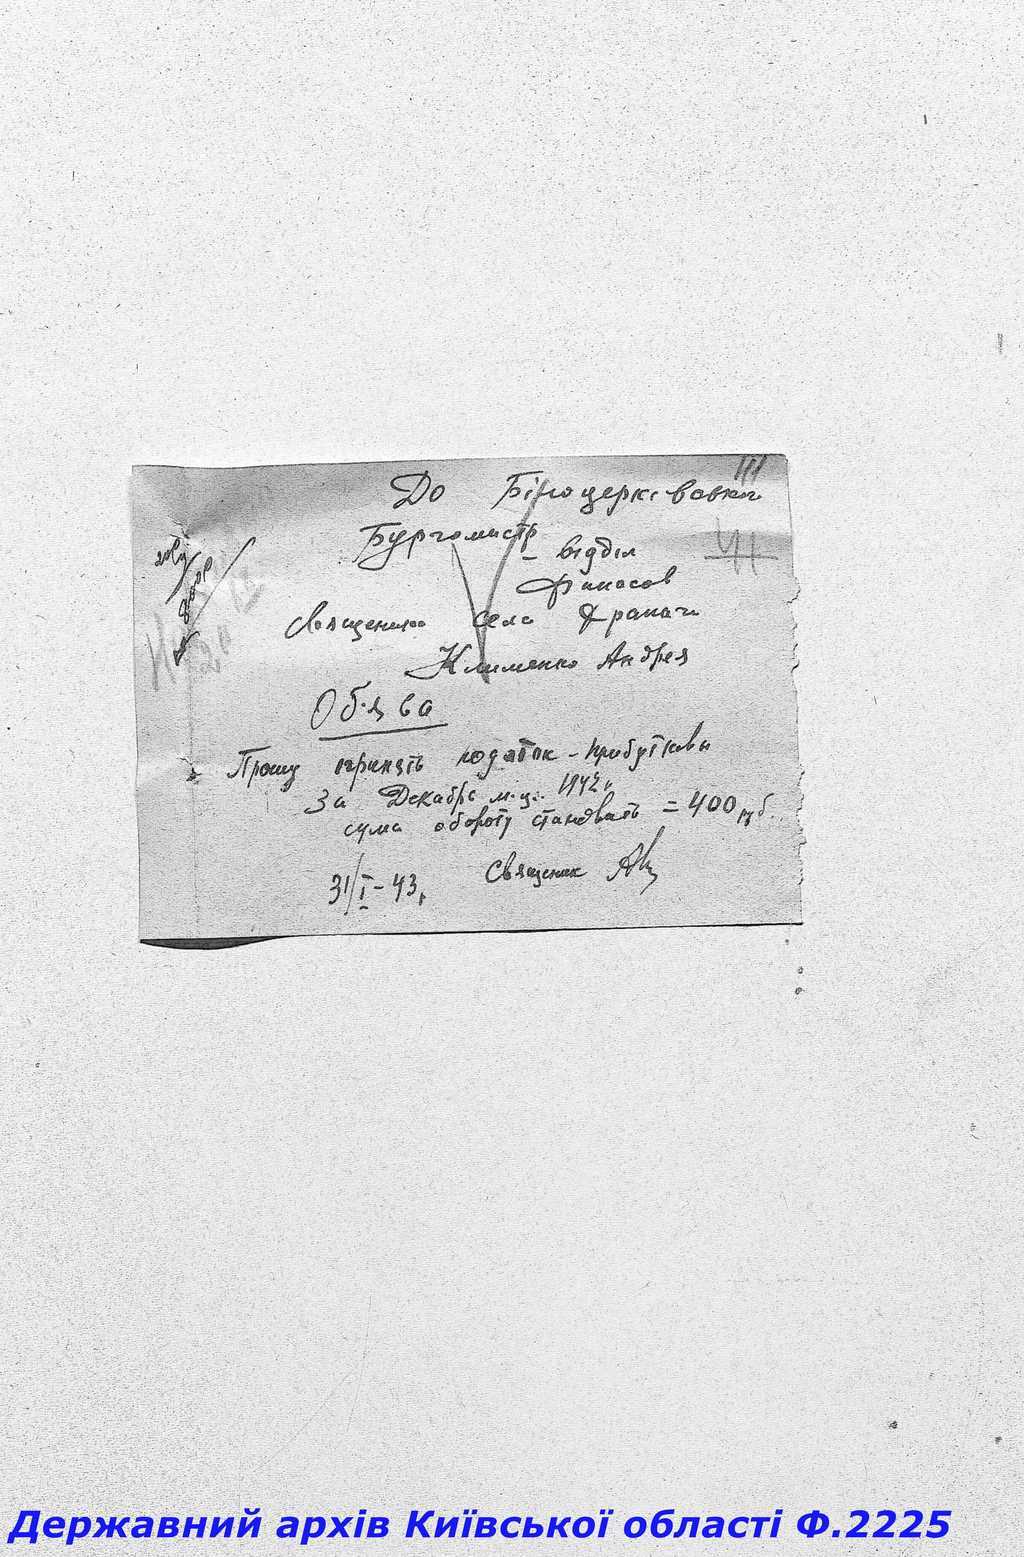 До Білоцерківської
Бургомистр
- відділ
финасов
Священика села Драпачи
Клименко Андрея
Об'ява
Прошу принять податок - прибутковы
За Декабрь м-ц. 1942 г.
сума обороту становить = 400 руб.
31/I - 43 г. Священик
41
Державний архів Київської області Ф.2225